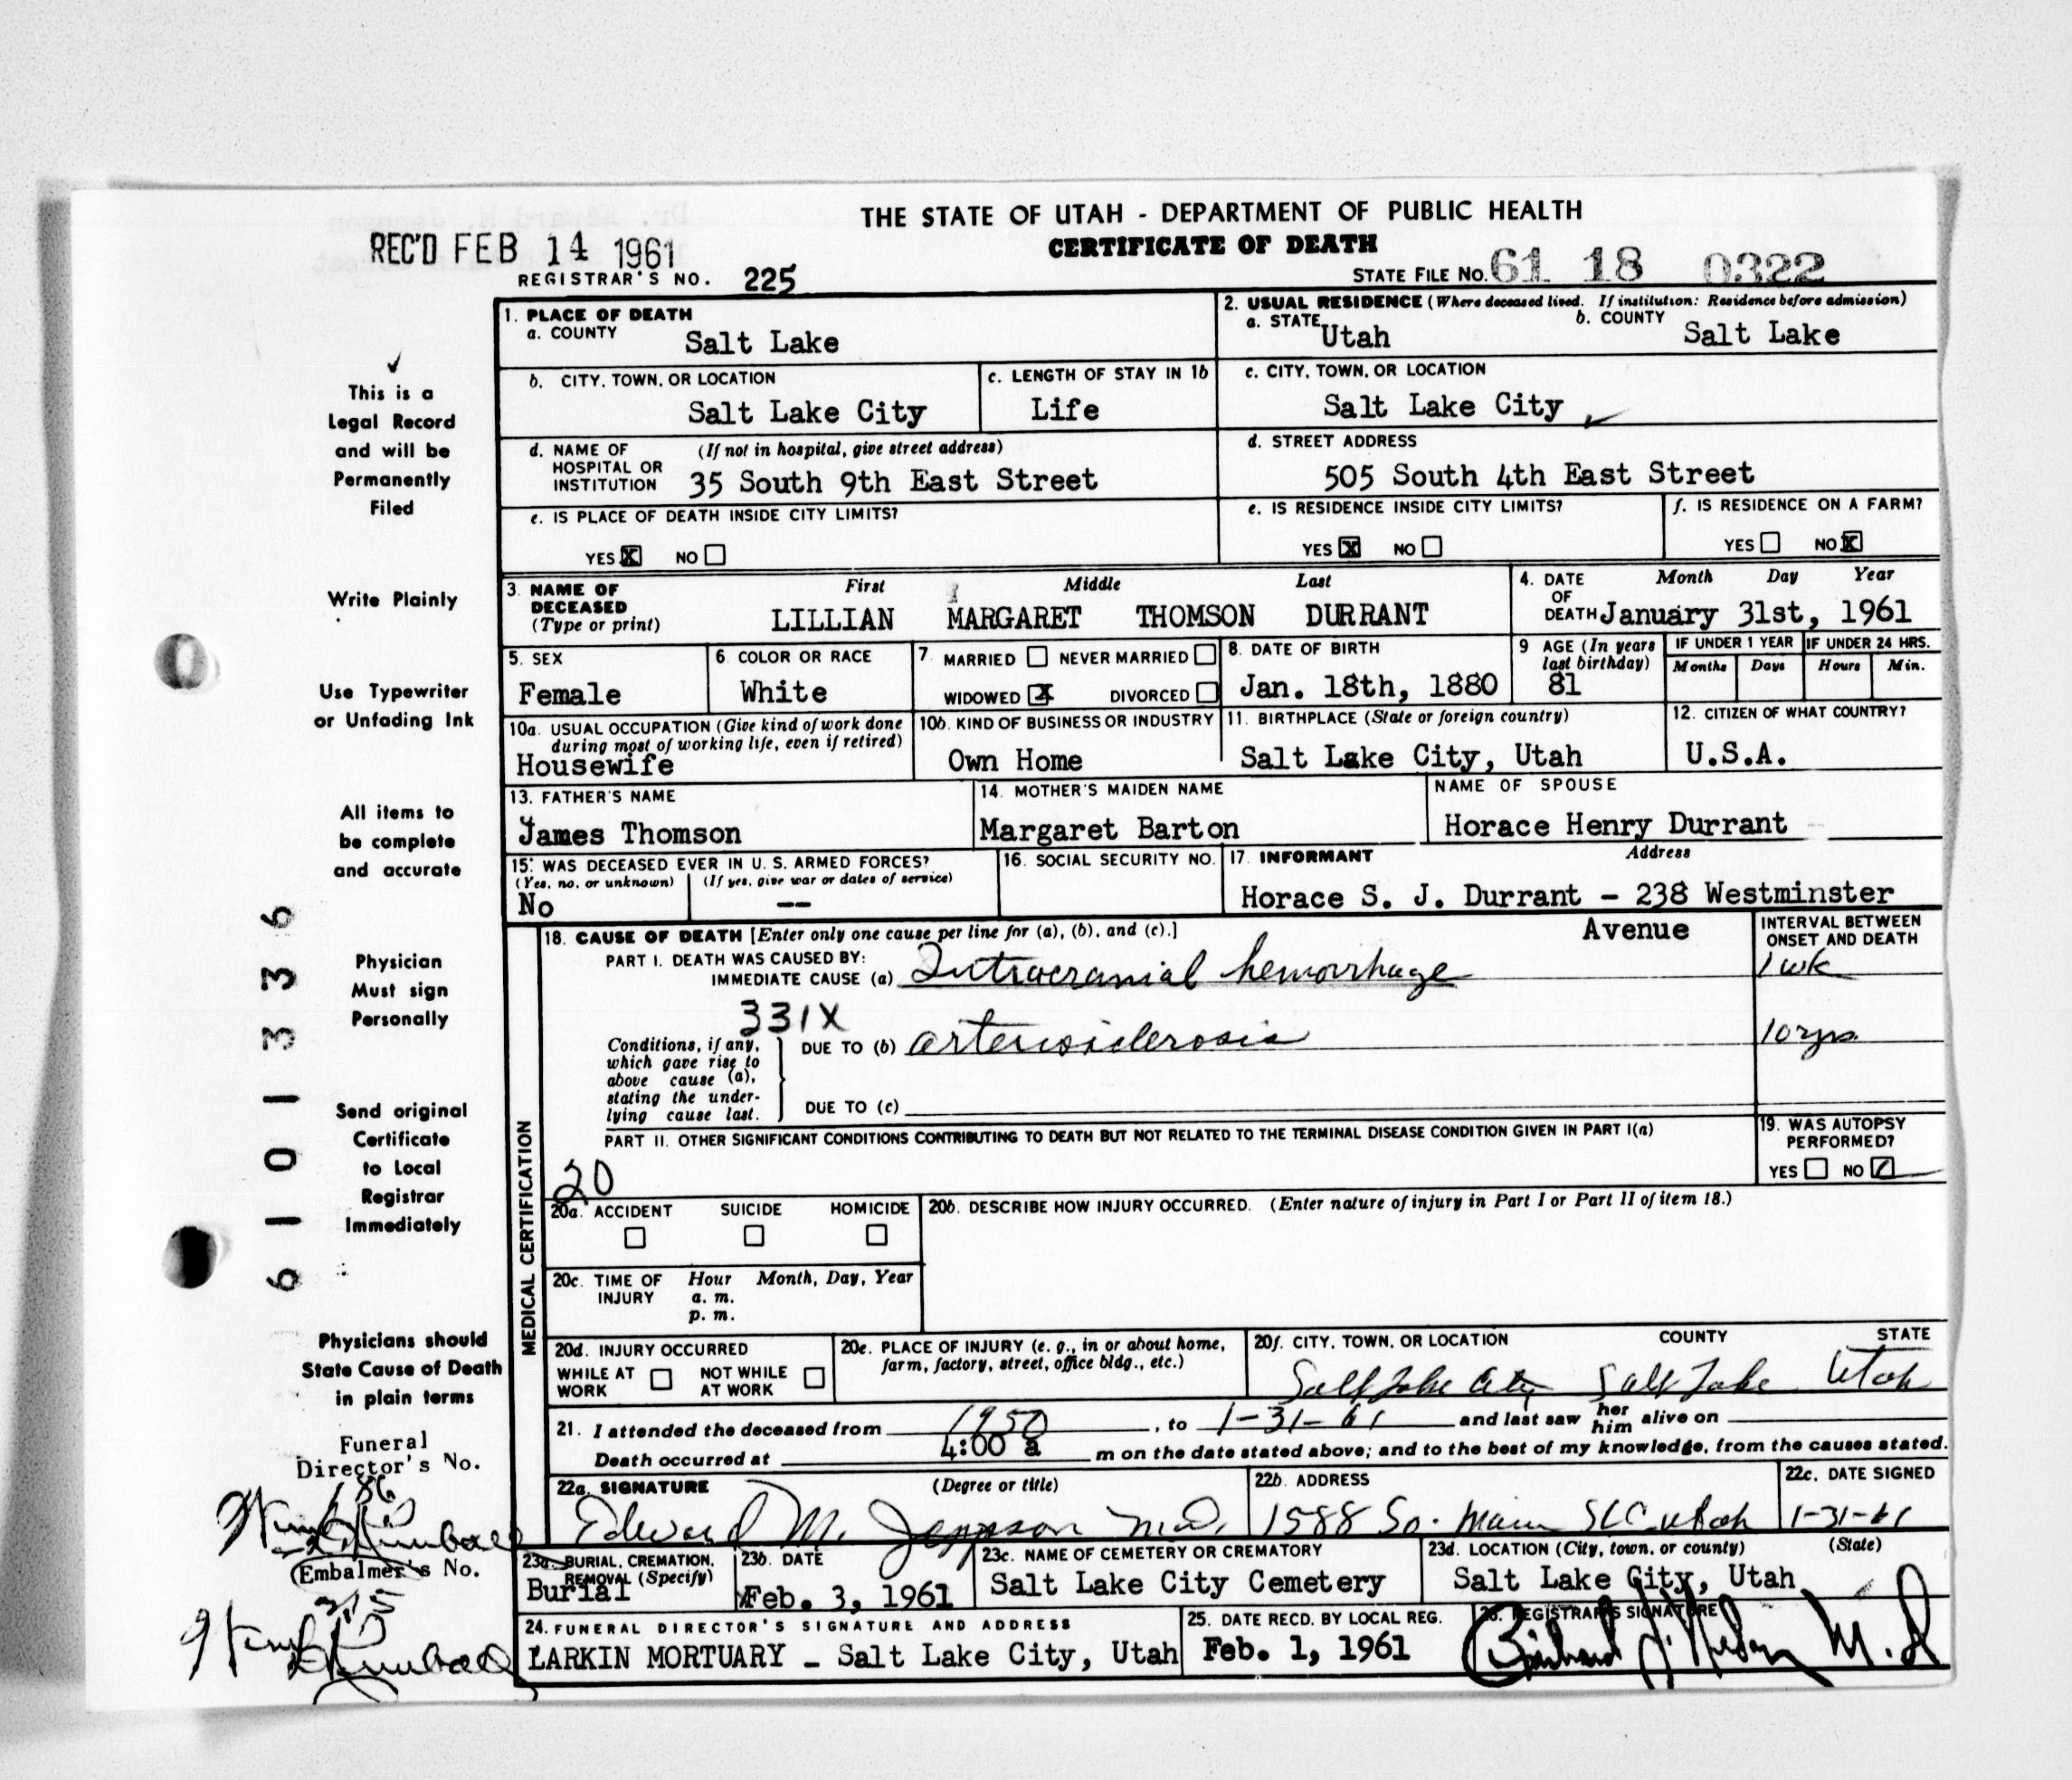 THE STATE OF UTAH - DEPARTMENT OF PUBLIC HEALTH
CERTIFICATE OF DEATH
REC'D FEB 14 1961
REGISTRAR'S NO. 225
STATE FILE NO. 61 18 0322
1. PLACE OF DEATH
a. COUNTY Salt Lake
2. USUAL RESIDENCE (Where deceased lived. If institution: Residence before admission)
a. STATE Utah b. COUNTY Salt Lake
b. CITY, TOWN, OR LOCATION Salt Lake City
c. LENGTH OF STAY IN 1b Life
c. CITY, TOWN, OR LOCATION Salt Lake City
d. NAME OF HOSPITAL OR INSTITUTION (If not in hospital, give street address)
35 South 9th East Street
d. STREET ADDRESS
505 South 4th East Street
e. IS PLACE OF DEATH INSIDE CITY LIMITS?
YES X NO
e. IS RESIDENCE INSIDE CITY LIMITS?
YES X NO
f. IS RESIDENCE ON A FARM?
YES NO X
3. NAME OF DECEASED (Type or print)
First Middle Last
LILLIAN MARGARET THOMSON DURRANT
4. DATE OF DEATH Month Day Year
January 31st, 1961
5. SEX
Female
6. COLOR OR RACE
White
7. MARRIED NEVER MARRIED
WIDOWED X DIVORCED
8. DATE OF BIRTH
Jan. 18th, 1880
9 AGE (In years last birthday)
81
IF UNDER 1 YEAR
Months Days
IF UNDER 24 HRS.
Hours Min.
10a. USUAL OCCUPATION (Give kind of work done during most of working life, even if retired)
Housewife
10b. KIND OF BUSINESS OR INDUSTRY
Own Home
11. BIRTHPLACE (State or foreign country)
Salt Lake City, Utah
12. CITIZEN OF WHAT COUNTRY?
U.S.A.
13. FATHER'S NAME
James Thomson
14. MOTHER'S MAIDEN NAME
Margaret Barton
NAME OF SPOUSE
Horace Henry Durrant
15. WAS DECEASED EVER IN U.S. ARMED FORCES?
(Yes, no, or unknown) (If yes, give war or dates of service)
No --
16. SOCIAL SECURITY NO.
17. INFORMANT Address
Horace S. J. Durrant - 238 Westminster
Avenue
MEDICAL CERTIFICATION
18. CAUSE OF DEATH [Enter only one cause per line for (a), (b), and (c).]
INTERVAL BETWEEN ONSET AND DEATH
PART I. DEATH WAS CAUSED BY:
IMMEDIATE CAUSE (a) Intracranial hemorrhage 1 wk
331X
Conditions, if any, which gave rise to above cause (a), stating the underlying cause last.
DUE TO (b) arteriosclerosis 10 yrs.
DUE TO (c)
PART II. OTHER SIGNIFICANT CONDITIONS CONTRIBUTING TO DEATH BUT NOT RELATED TO THE TERMINAL DISEASE CONDITION GIVEN IN PART I(a)
20
19. WAS AUTOPSY PERFORMED?
YES NO
20a. ACCIDENT SUICIDE HOMICIDE
20b. DESCRIBE HOW INJURY OCCURRED. (Enter nature of injury in Part I or Part II of item 18.)
20c. TIME OF INJURY Hour Month, Day, Year
a. m.
p. m.
20d. INJURY OCCURRED
WHILE AT WORK NOT WHILE AT WORK
20e. PLACE OF INJURY (e. g., in or about home, farm, factory, street, office bldg., etc.)
20f. CITY, TOWN, OR LOCATION COUNTY STATE
Salt Lake City Salt Lake Utah
21. I attended the deceased from 1950, to 1-31-61 and last saw her him alive on
Death occurred at 4:00 a m on the date stated above; and to the best of my knowledge, from the causes stated.
22a. SIGNATURE (Degree or title)
Edward M. Jeppson M.D.
22b. ADDRESS
1588 So. Main SLC Utah
22c. DATE SIGNED
1-31-61
23a. BURIAL, CREMATION, REMOVAL (Specify)
Burial
23b. DATE
Feb. 3, 1961
23c. NAME OF CEMETERY OR CREMATORY
Salt Lake City Cemetery
23d. LOCATION (City, town, or county) (State)
Salt Lake City, Utah
24. FUNERAL DIRECTOR'S SIGNATURE AND ADDRESS
LARKIN MORTUARY - Salt Lake City, Utah
25. DATE RECD. BY LOCAL REG.
Feb. 1, 1961
26. REGISTRAR'S SIGNATURE
M.D.
This is a
Legal Record
and will be
Permanently
Filed
Write Plainly
Use Typewriter
or Unfading Ink
All items to
be complete
and accurate
Physician
Must sign
Personally
Send original
Certificate
to Local
Registrar
Immediately
Physicians should
State Cause of Death
in plain terms
Funeral
Director's No.
186
Embalmer's No.
6101336